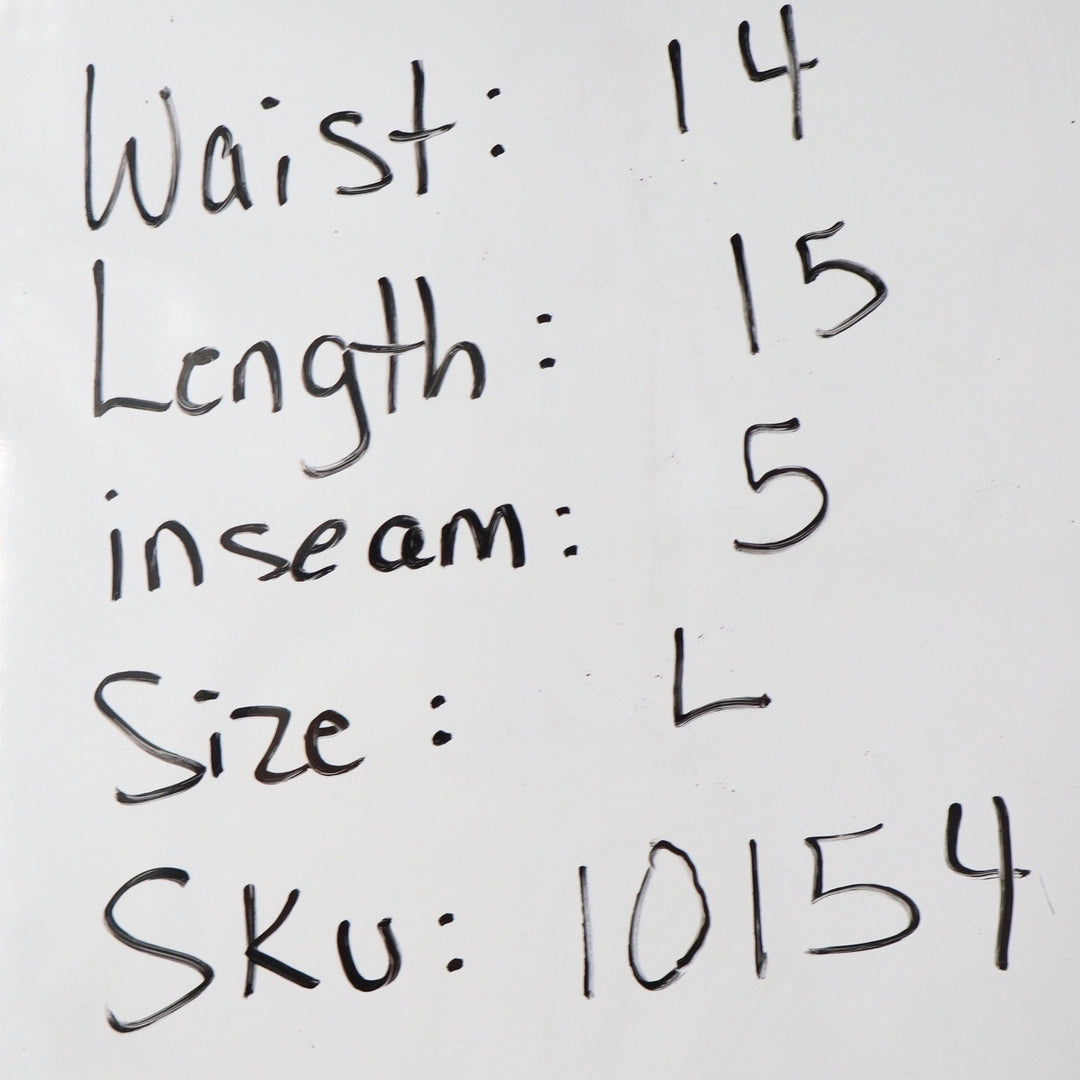 Waist: 14
Length: 15
inseam: 5
Size: L
SKU: 10154